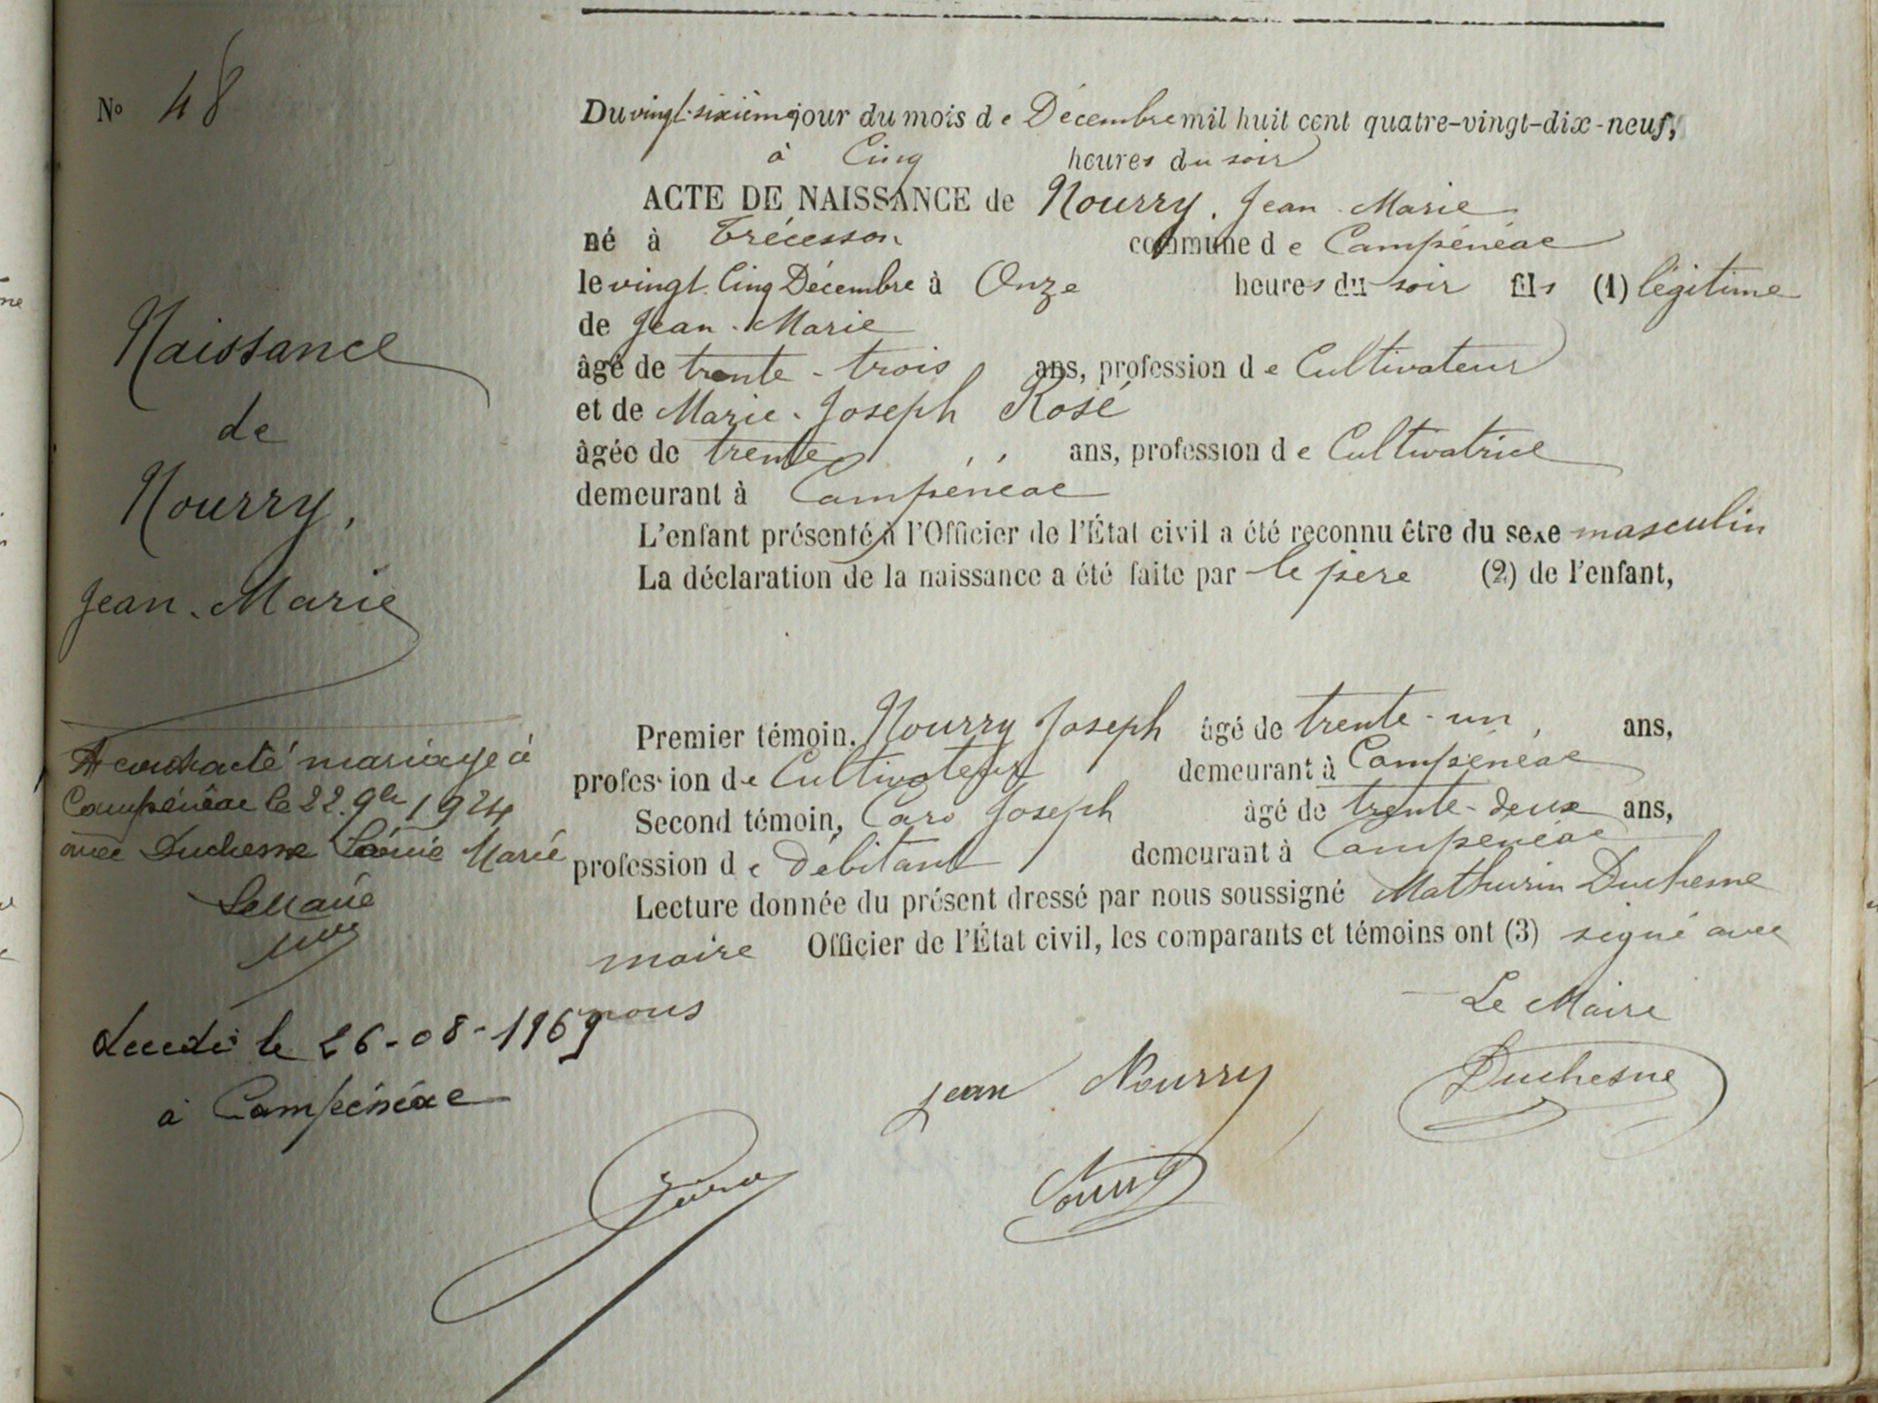 N° 48
Naissance
de
Nourry,
Jean-Marie
A contracté mariage à
Campénéac le 22. 9bre 1924
avec Duchesne Marie
Le Maire
décédé le 26-08-1969
à Campénéac
Du vingt-sixième jour du mois de Décembre mil huit cent quatre-vingt-dix-neuf,
à Cinq heures du soir
ACTE DE NAISSANCE de Nourry, Jean-Marie
né à Trécesson commune de Campénéac
le vingt-Cinq Décembre à Onze heures du soir fils (1) légitime
de Jean-Marie
âgé de trente-trois ans, profession de Cultivateur
et de Marie-Joseph Rosé
âgée de trente ans, profession de Cultivatrice
demeurant à Campénéac
L'enfant présenté à l'Officier de l'État civil a été reconnu être du sexe masculin
La déclaration de la naissance a été faite par le père (2) de l'enfant,
Premier témoin, Nourry Joseph âgé de trente-un ans,
profession de Cultivateur demeurant à Campénéac
Second témoin, Caro Joseph âgé de trente-deux ans,
profession de Débitant demeurant à Campénéac
Lecture donnée du présent dressé par nous soussigné Mathurin Duchesne
maire Officier de l'État civil, les comparants et témoins ont (3) signé avec
nous
Le Maire
Jean Nourry
Duchesne
Caro
Nourry